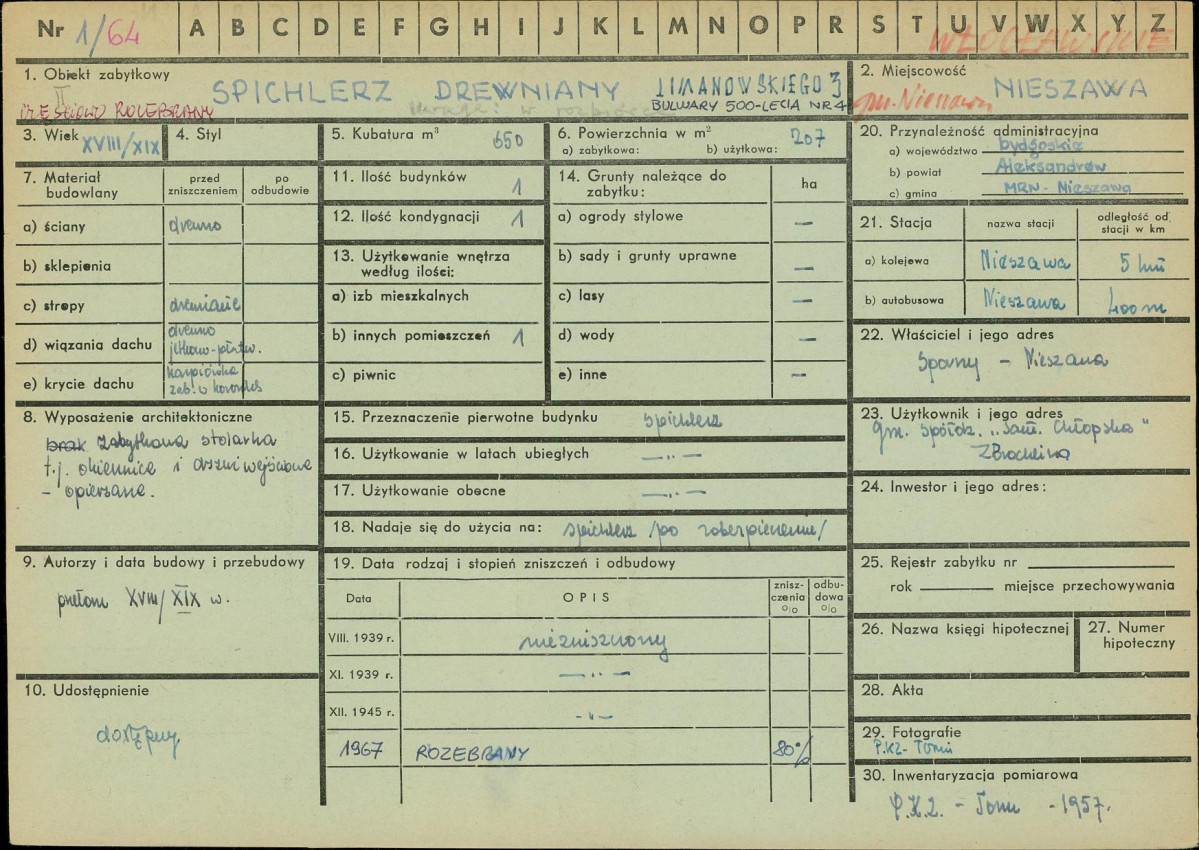 Nr 1/64 A B C D E F G H I J K L M N O P R S T U V W X Y Z
WŁOCŁAWSKIE
1. Obiekt zabytkowy
SPICHLERZ DREWNIANY LIMANOWSKIEGO 3
BULWARY 500-LECIA NR 4
CZĘŚCIOWO ROZEBRANY
2. Miejscowość
NIESZAWA
gm. Nieszawa
3. Wiek XVIII/XIX
4. Styl
5. Kubatura m³ 650
6. Powierzchnia w m² 207
a) zabytkowa: b) użytkowa:
20. Przynależność administracyjna
a) województwo bydgoskie
b) powiat Aleksandrów
c) gmina MRN - Nieszawa
7. Materiał budowlany
przed zniszczeniem
po odbudowie
a) ściany drewno
b) sklepienia
c) stropy drewniane
d) wiązania dachu drewno
e) krycie dachu karpiówka
11. Ilość budynków 1
12. Ilość kondygnacji 1
13. Użytkowanie wnętrza
według ilości:
a) izb mieszkalnych
b) innych pomieszczeń 1
c) piwnic
14. Grunty należące do
zabytku: ha
a) ogrody stylowe —
b) sady i grunty uprawne —
c) lasy —
d) wody —
e) inne —
21. Stacja nazwa stacji odległość od
stacji w km
a) kolejowa Nieszawa 5 km
b) autobusowa Nieszawa 400 m
22. Właściciel i jego adres
Sporny - Nieszawa
8. Wyposażenie architektoniczne
brak zabytkowa stolarka
t.j. okiennice i drzwi wejściowe
- opierzane.
15. Przeznaczenie pierwotne budynku spichlerz
16. Użytkowanie w latach ubiegłych —„—
17. Użytkowanie obecne —„—
18. Nadaje się do użycia na: spichlerz /po zabezpieczeniu/
23. Użytkownik i jego adres
Gm. Spółdz. „Sam. Chłopska"
24. Inwestor i jego adres:
9. Autorzy i data budowy i przebudowy
przełom XVIII/XIX w.
19. Data rodzaj i stopień zniszczeń i odbudowy
Data OPIS znisz-
czenia
o|o odbu-
dowa
o|o
VIII. 1939 r. niezniszczony
XI. 1939 r. —„—
XII. 1945 r. -„-
1967 ROZEBRANY 80%
25. Rejestr zabytku nr
rok miejsce przechowywania
26. Nazwa księgi hipotecznej
27. Numer
hipoteczny
10. Udostępnienie
dostępny
28. Akta
29. Fotografie
P.KZ - Toruń
30. Inwentaryzacja pomiarowa
P.K.Z. - Toruń - 1957.